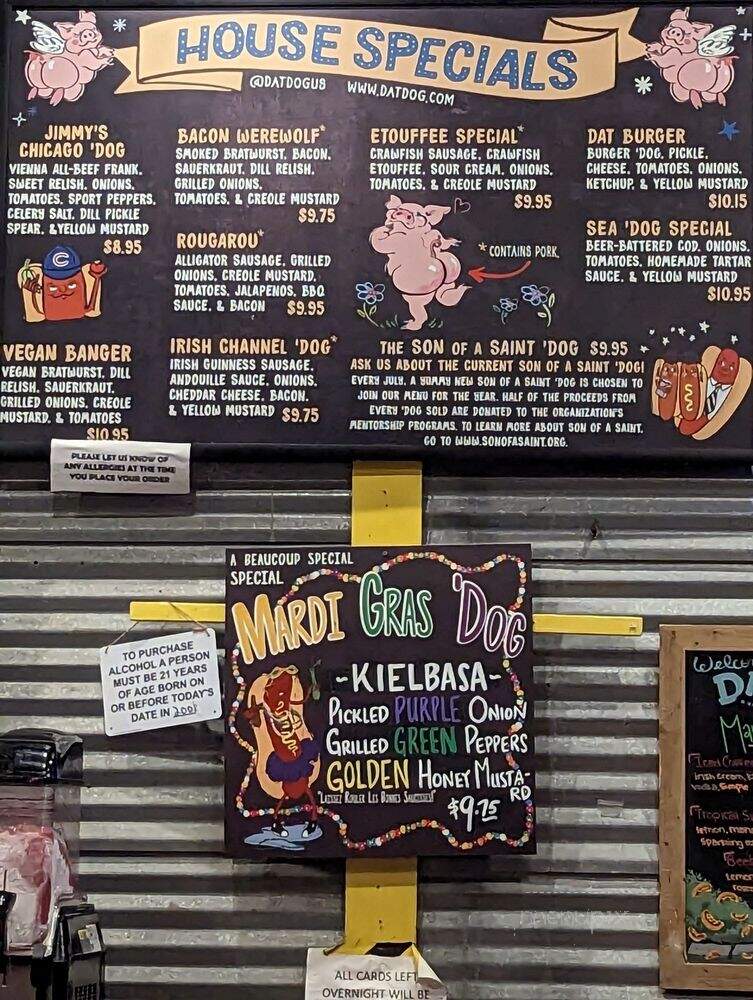 HOUSE SPECIALS
@DATDOGUS WWW.DATDOG.COM
JIMMY'S
CHICAGO 'DOG
VIENNA ALL-BEEF FRANK,
SWEET RELISH, ONIONS,
TOMATOES, SPORT PEPPERS,
CELERY SALT, DILL PICKLE
SPEAR, & YELLOW MUSTARD
$8.95
C
VEGAN BANGER
VEGAN BRATWURST, DILL
RELISH, SAUERKRAUT,
GRILLED ONIONS, CREOLE
MUSTARD, & TOMATOES
$10.95
BACON WEREWOLF*
SMOKED BRATWURST, BACON,
SAUERKRAUT, DILL RELISH,
GRILLED ONIONS,
TOMATOES, & CREOLE MUSTARD
$9.75
ROUGAROU*
ALLIGATOR SAUSAGE, GRILLED
ONIONS, CREOLE MUSTARD,
TOMATOES, JALAPENOS, BBQ
SAUCE, & BACON $9.95
IRISH CHANNEL 'DOG*
IRISH GUINNESS SAUSAGE,
ANDOUILLE SAUCE, ONIONS,
CHEDDAR CHEESE, BACON,
& YELLOW MUSTARD $9.75
ETOUFFEE SPECIAL*
CRAWFISH SAUSAGE, CRAWFISH
ETOUFFEE, SOUR CREAM, ONIONS,
TOMATOES, & CREOLE MUSTARD
$9.95
* CONTAINS PORK.
DAT BURGER
BURGER 'DOG, PICKLE,
CHEESE, TOMATOES, ONIONS,
KETCHUP, & YELLOW MUSTARD
$10.15
SEA 'DOG SPECIAL
BEER-BATTERED COD, ONIONS,
TOMATOES, HOMEMADE TARTAR
SAUCE, & YELLOW MUSTARD
$10.95
THE SON OF A SAINT 'DOG $9.95
ASK US ABOUT THE CURRENT SON OF A SAINT 'DOG!
EVERY JULY, A YUMMY NEW SON OF A SAINT 'DOG IS CHOSEN TO
JOIN OUR MENU FOR THE YEAR. HALF OF THE PROCEEDS FROM
EVERY 'DOG SOLD ARE DONATED TO THE ORGANIZATION'S
MENTORSHIP PROGRAMS. TO LEARN MORE ABOUT SON OF A SAINT,
GO TO WWW.SONOFASAINT.ORG.
PLEASE LET US KNOW OF
ANY ALLERGIES AT THE TIME
YOU PLACE YOUR ORDER
A BEAUCOUP SPECIAL
SPECIAL
MARDI GRAS 'DOG
-KIELBASA-
PICKLED PURPLE ONION
GRILLED GREEN PEPPERS
GOLDEN HONEY MUSTA-
RD
"LAISSEZ ROULER LES BONNES SAUCISSES"
$9.75
TO PURCHASE
ALCOHOL A PERSON
MUST BE 21 YEARS
OF AGE BORN ON
OR BEFORE TODAY'S
DATE IN 2001
ALL CARDS LEFT
OVERNIGHT WILL BE
Tropical